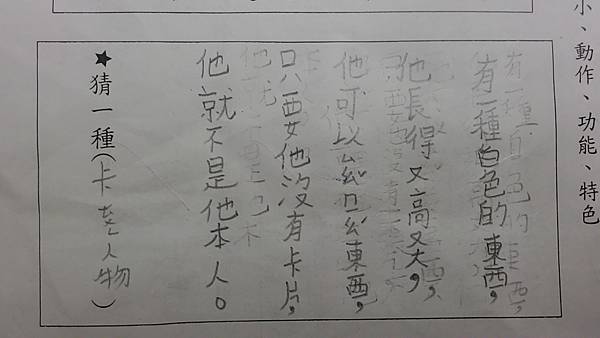 小、動作、功能、特色
有一種白色的東西,
他長得又高又大,
他可以東西,
只要他沒有卡片,
他就不是他本人。
★猜一種(卡人物)